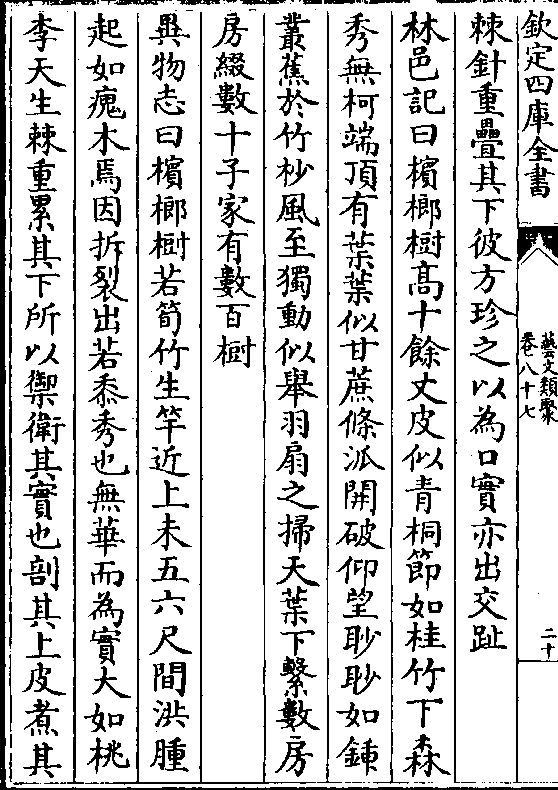 欽定四庫全書
藝文類聚
卷八十七
二十
棘針重疊其下彼方珍之以為口實亦出交趾
林邑記曰檳榔樹高十餘丈皮似青桐節如桂竹下森
秀無柯端頂有葉葉似甘蔗條派開破仰望眇眇如鍤
叢蕉於竹杪風至獨動似舉羽扇之掃天葉下繫數房
房綴數十子家有數百樹
異物志曰檳榔樹若筍竹生竿近上未五六尺間洪腫
起如瘣木焉因拆裂出若黍秀也無華而為實大如桃
李天生棘重累其下所以禦衛其實也剖其上皮煮其